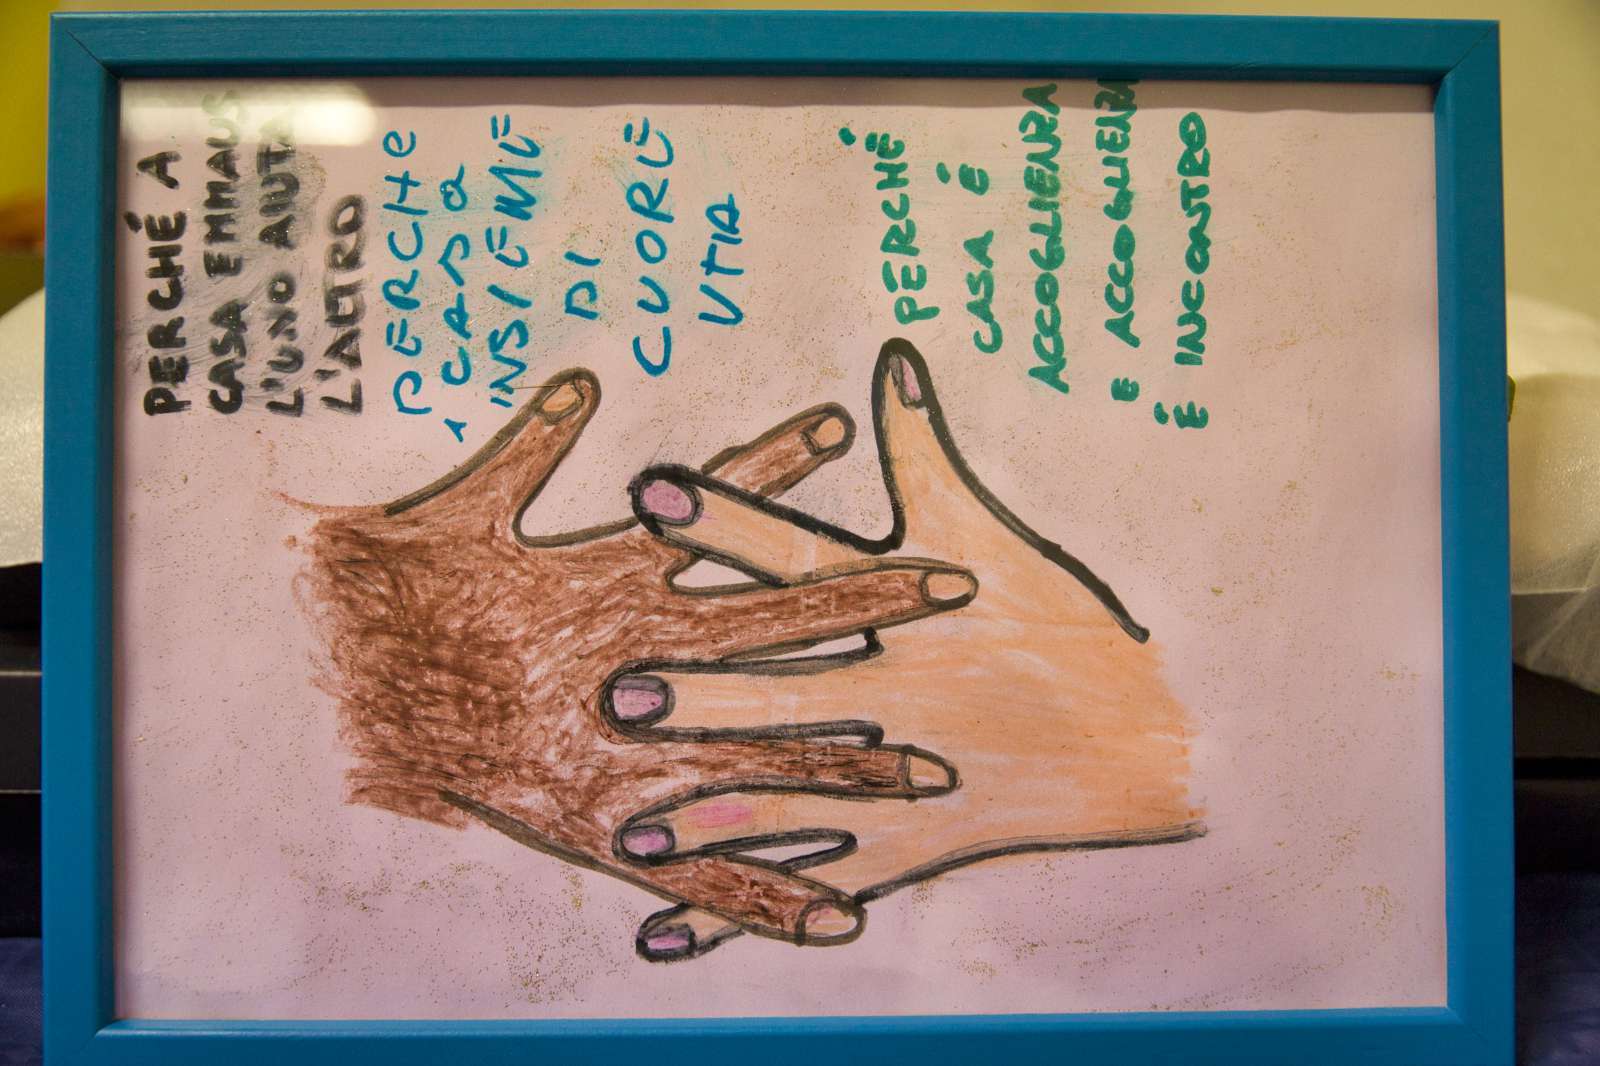 PERCHÉ A
CASA EMMAUS
L'UNO AIUTA
L'ALTRO
PERCHE
i CASa
INSIEME
DI
CUORE
VTIA
PERCHÉ
CASA É
ACCOGLIENZA
E ACCOGLIENZA
É INCONTRO